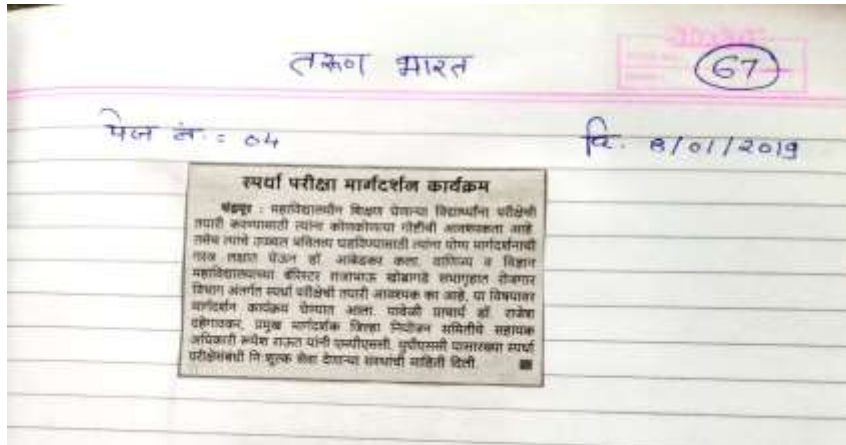 तरुण भारत
67
पेज नं. : 04
दि. 8/01/2019
स्पर्धा परीक्षा मार्गदर्शन कार्यक्रम
चंद्रपूर : महाविद्यालयीन शिक्षण घेणाऱ्या विद्यार्थ्यांना परीक्षेची
तयारी करण्यासाठी त्यांना कोणकोणत्या गोष्टींची आवश्यकता आहे
तसेच त्यांचे उज्ज्वल भवितव्य घडविण्यासाठी त्यांना योग्य मार्गदर्शनाची
गरज लक्षात घेऊन डॉ. आंबेडकर कला, वाणिज्य व विज्ञान
महाविद्यालयाच्या बॅरिस्टर राजाभाऊ खोब्रागडे सभागृहात रोजगार
विभाग अंतर्गत स्पर्धा परीक्षेची तयारी आवश्यक का आहे, या विषयावर
मार्गदर्शन कार्यक्रम घेण्यात आला. यावेळी प्राचार्य डॉ. राजेश
दहेगावकर, प्रमुख मार्गदर्शक जिल्हा नियोजन समितीचे सहायक
अधिकारी रूपेश राऊत यांनी एमपीएससी, यूपीएससी यासारख्या स्पर्धा
परीक्षेसंबंधी नि:शुल्क सेवा देणाऱ्या संस्थांची माहिती दिली.